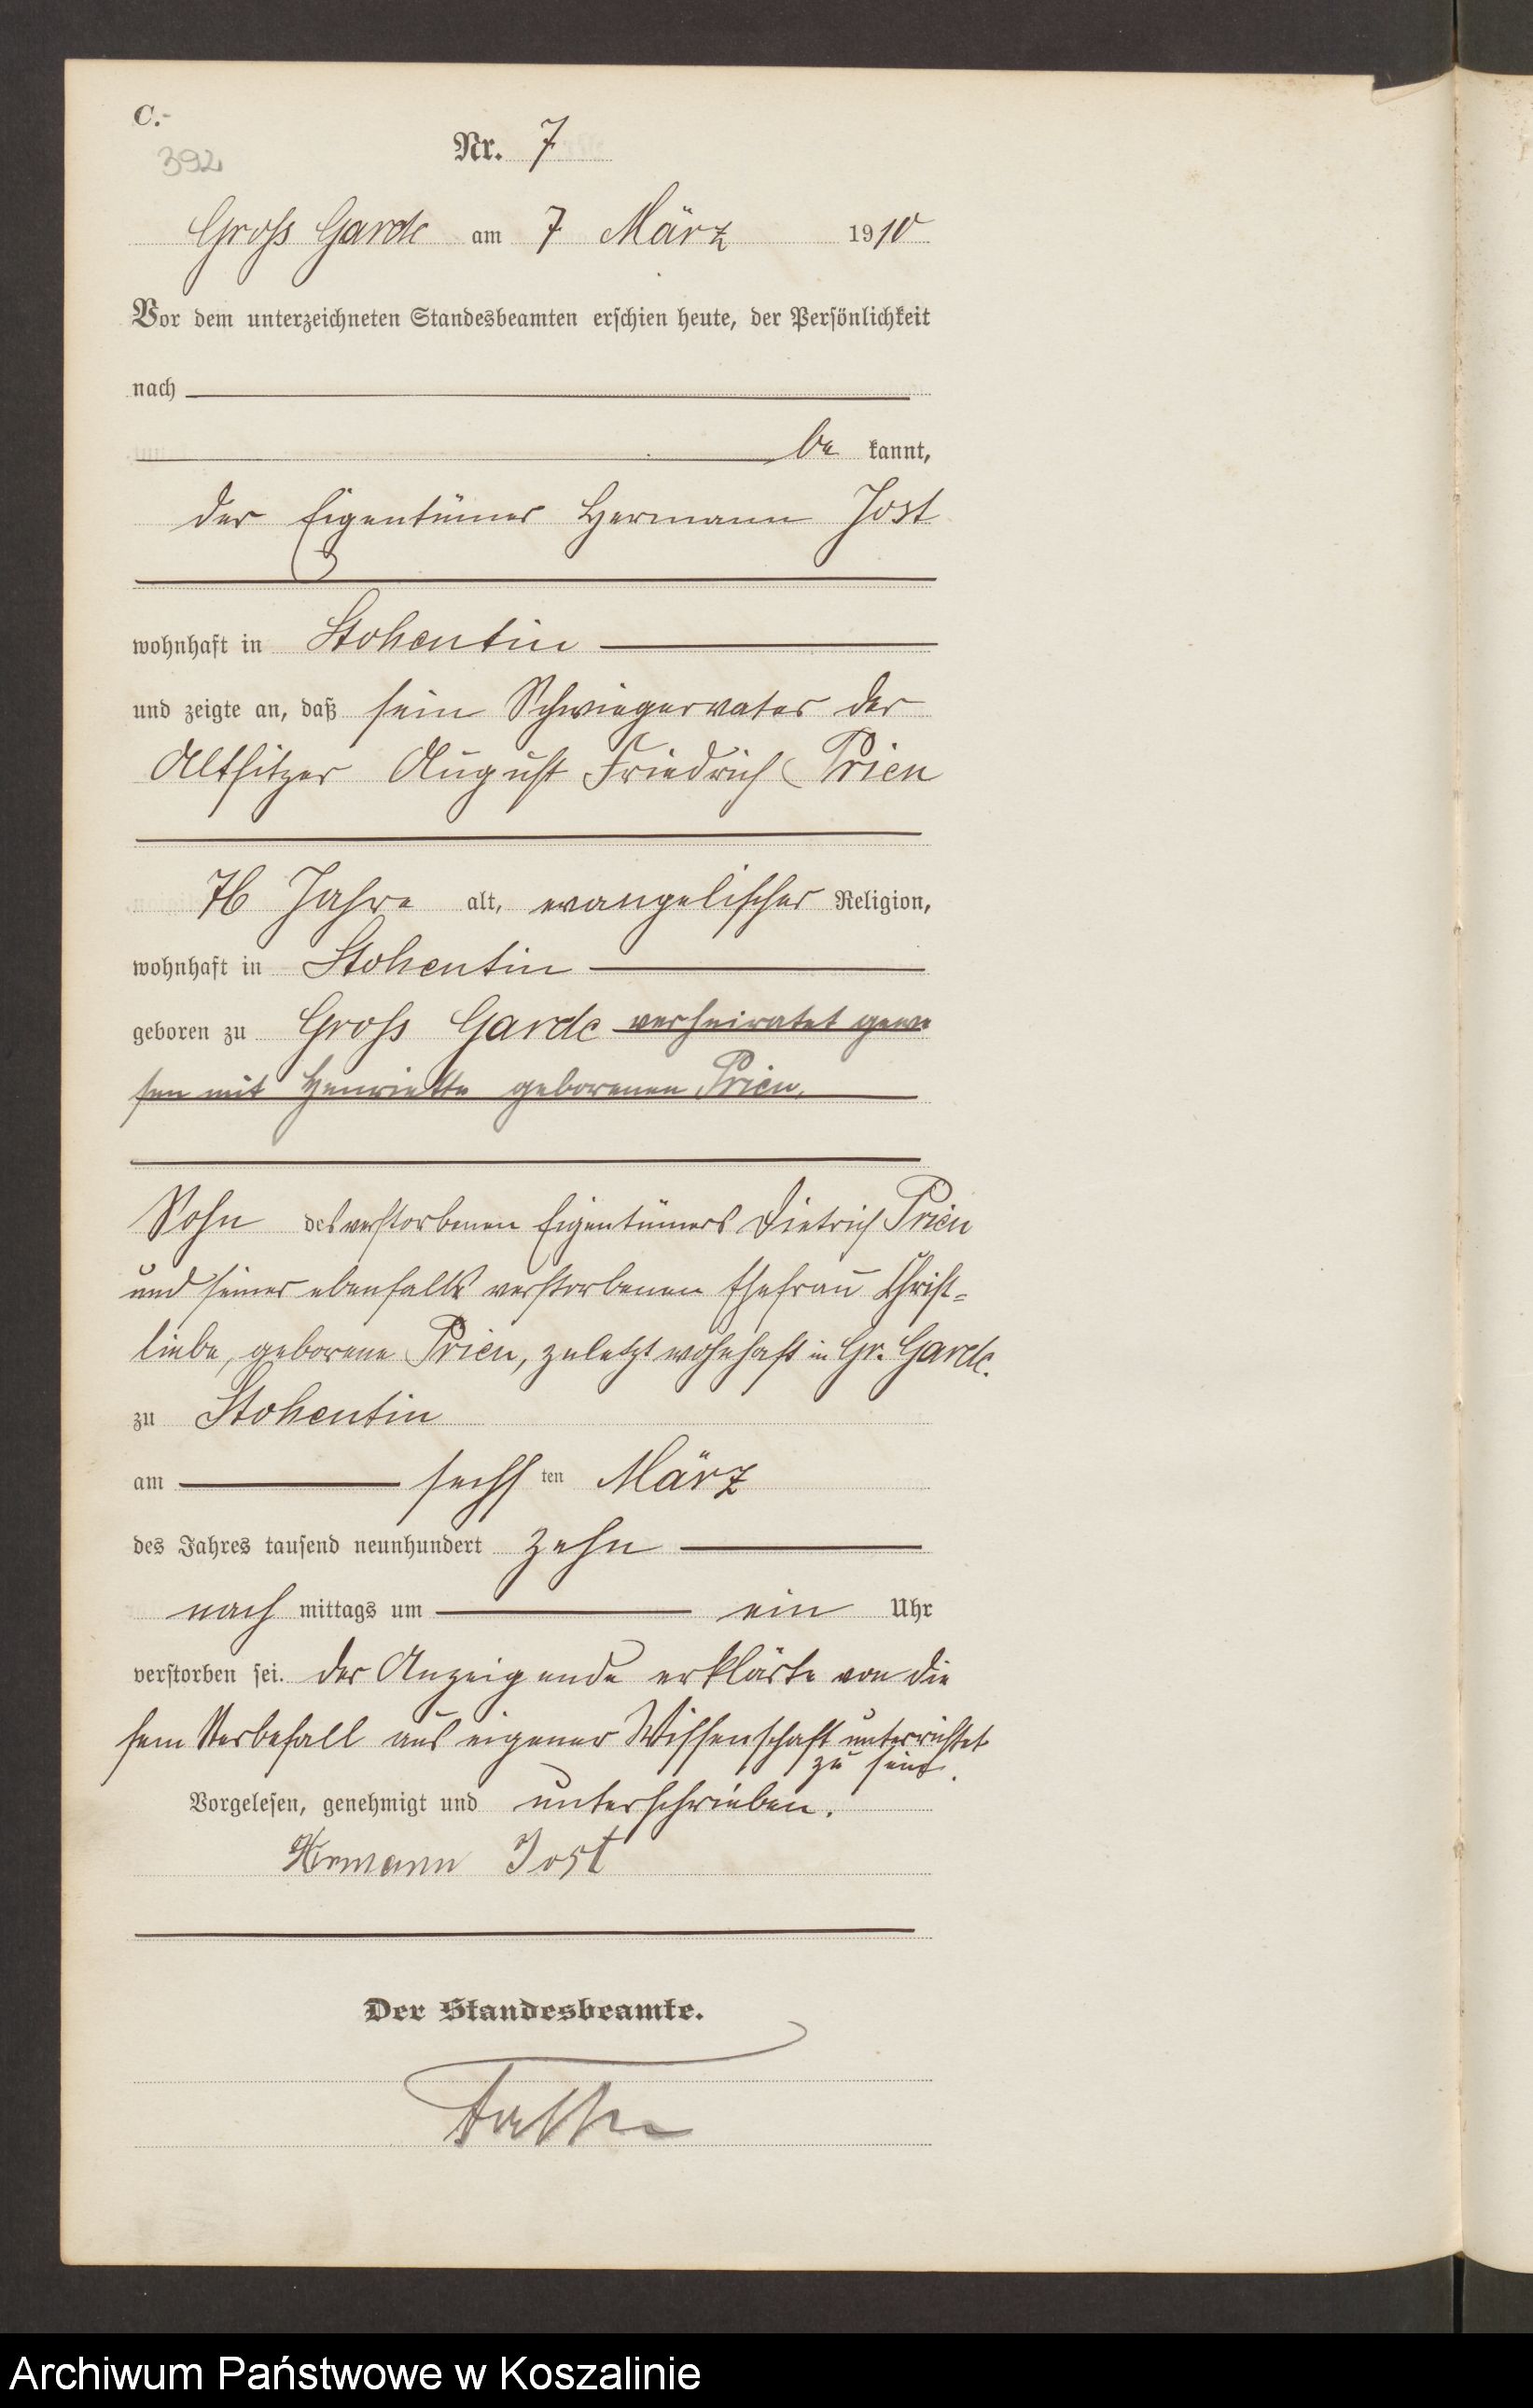 C.-
392
Nr. 7
Gross Garde am 7 März 1910
Vor dem unterzeichneten Standesbeamten erschien heute, der Persönlichkeit
nach
be kannt,
der Eigentümer Hermann Jost
wohnhaft in Stohentin
und zeigte an, daß sein Schwiegervater der
Altsitzer August Friedrich Prien
76 Jahre alt, evangelischer Religion,
wohnhaft in Stohentin
geboren zu Gross Garde verheiratet gewe
sen mit Henriette geborenen Prien.
Sohn des verstorbenen Eigentümers Dietrich Prien
und seiner ebenfalls verstorbenen Ehefrau Christ=
liebe, geborene Prien, zuletzt wohnhaft in Gr. Garde.
zu Stohentin
am sechs ten März
des Jahres tausend neunhundert zehn
nach mittags um ein Uhr
verstorben sei. Der Anzeigende erklärte von die
sem Sterbefall aus eigener Wissenschaft unterrichtet
zu sein.
Vorgelesen, genehmigt und unterschrieben.
Hermann Jost
Der Standesbeamte.
Archiwum Państwowe w Koszalinie